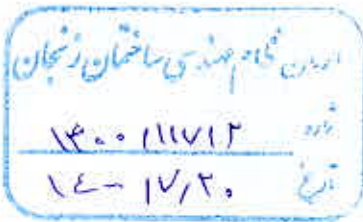 سازمان نظام مهندسی ساختمان زنجان
شماره ۱۴۰۰/۱۱۷۱۲
تاریخ ۱۴۰۰/۷/۲۰